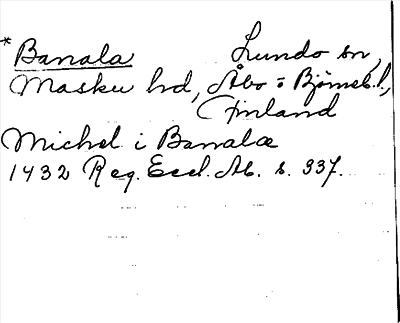 * Banala Lundo sn,
Masku hd, Åbo o Björneb.l.,
Finland
Michel i Banalæ
1432 Reg. Eccl. Ab. s. 337.